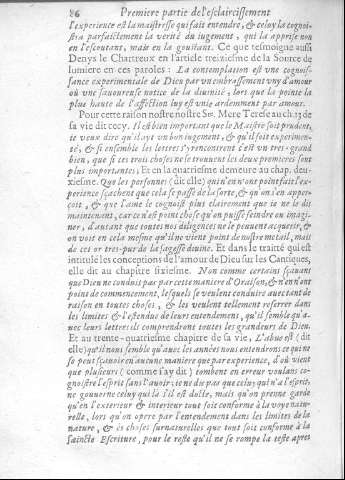 86 Premiere partie de l'esclaircissement
l'experience est la maistresse qui fait entendre, & celuy la cognoi-
stra parfaictement la verité du iugement, qui la apprise non
en l'escoutant, mais en la goustant. Ce que tesmoigne aussi
Denys le Chartreux en l'article treiziesme de la Source de
lumiere en ces paroles : La contemplation est vne cognois-
sance experimentale de Dieu par vn embrassement vny d'amour
où vne sauoureuse notice de la diuinité, lors que la pointe la
plus haute de l'affection luy est vnie ardemment par amour.
Pour cette raison nostre nostre Ste. Mere Terese au ch. 23 de
sa vie dit cecy. Il est bien important que le Maistre soit prudent,
ie veux dire qu'il aye vn bon iugement, & qu'il soit experimen-
té, & si ensemble les lettres s'y rencontrent c'est vn tres-grand
bien, que si ces trois choses ne se trouuent les deux premieres sont
plus importantes; Et en la quatriesme demeure au chap. deu-
xiesme. Que les personnes (dit elle) qui n'en n'ont point fait l'ex-
perience sçachent que cela se passe de la sorte, & qu'on s'en apper-
çoit, & que l'ame le cognoist plus clairement que ie ne le dit
maintenant, car ce n'est point chose qu'on puisse feindre ou imagi-
ner, d'autant que toutes nos diligences ne le peuuent acquerir, &
on voit en cela mesme qu'il ne vient point de nostre metail, mais
de cet or tres-pur de la sagesse diuine. Et dans le traitté qui est
intitulé les conceptions de l'amour de Dieu sur les Cantiques,
elle dit au chapitre sixiesme. Non comme certains sçauant
que Dieu ne conduit pas par cette maniere d'Oraison, & n'en n'ont
point de commencement, lesquels se veulent conduire auec tant de
raison en toutes choses, & les veulent tellement resserrer dans
les limites & l'estenduë de leurs entendemens, qu'il semble qu'a-
uec leurs lettres ils comprendront toutes les grandeurs de Dieu.
Et au trente-quatriesme chapitre de sa vie, L'abus est (dit
elle) qu'il nous semble qu'auec les années nous entendrons ce qui ne
se peut sçauoir en aucune maniere que par experience, d'où vient
que plusieurs (comme i'ay dit) tombent en erreur voulans co-
gnoistre l'esprit sans l'auoir; ie ne dis pas que celuy qui n'a l'esprit,
ne gouuerne celuy qui la s'il est docte, mais qu'on prenne garde
qu'en l'exterieur & interieur tout soit conforme à la voye natu-
relle, lors qu'on opere par l'entendement dans les limites de la
nature, & és choses surnaturelles que tout soit conforme à la
saincte Escriture, pour le reste qu'il ne se rompe la teste apres